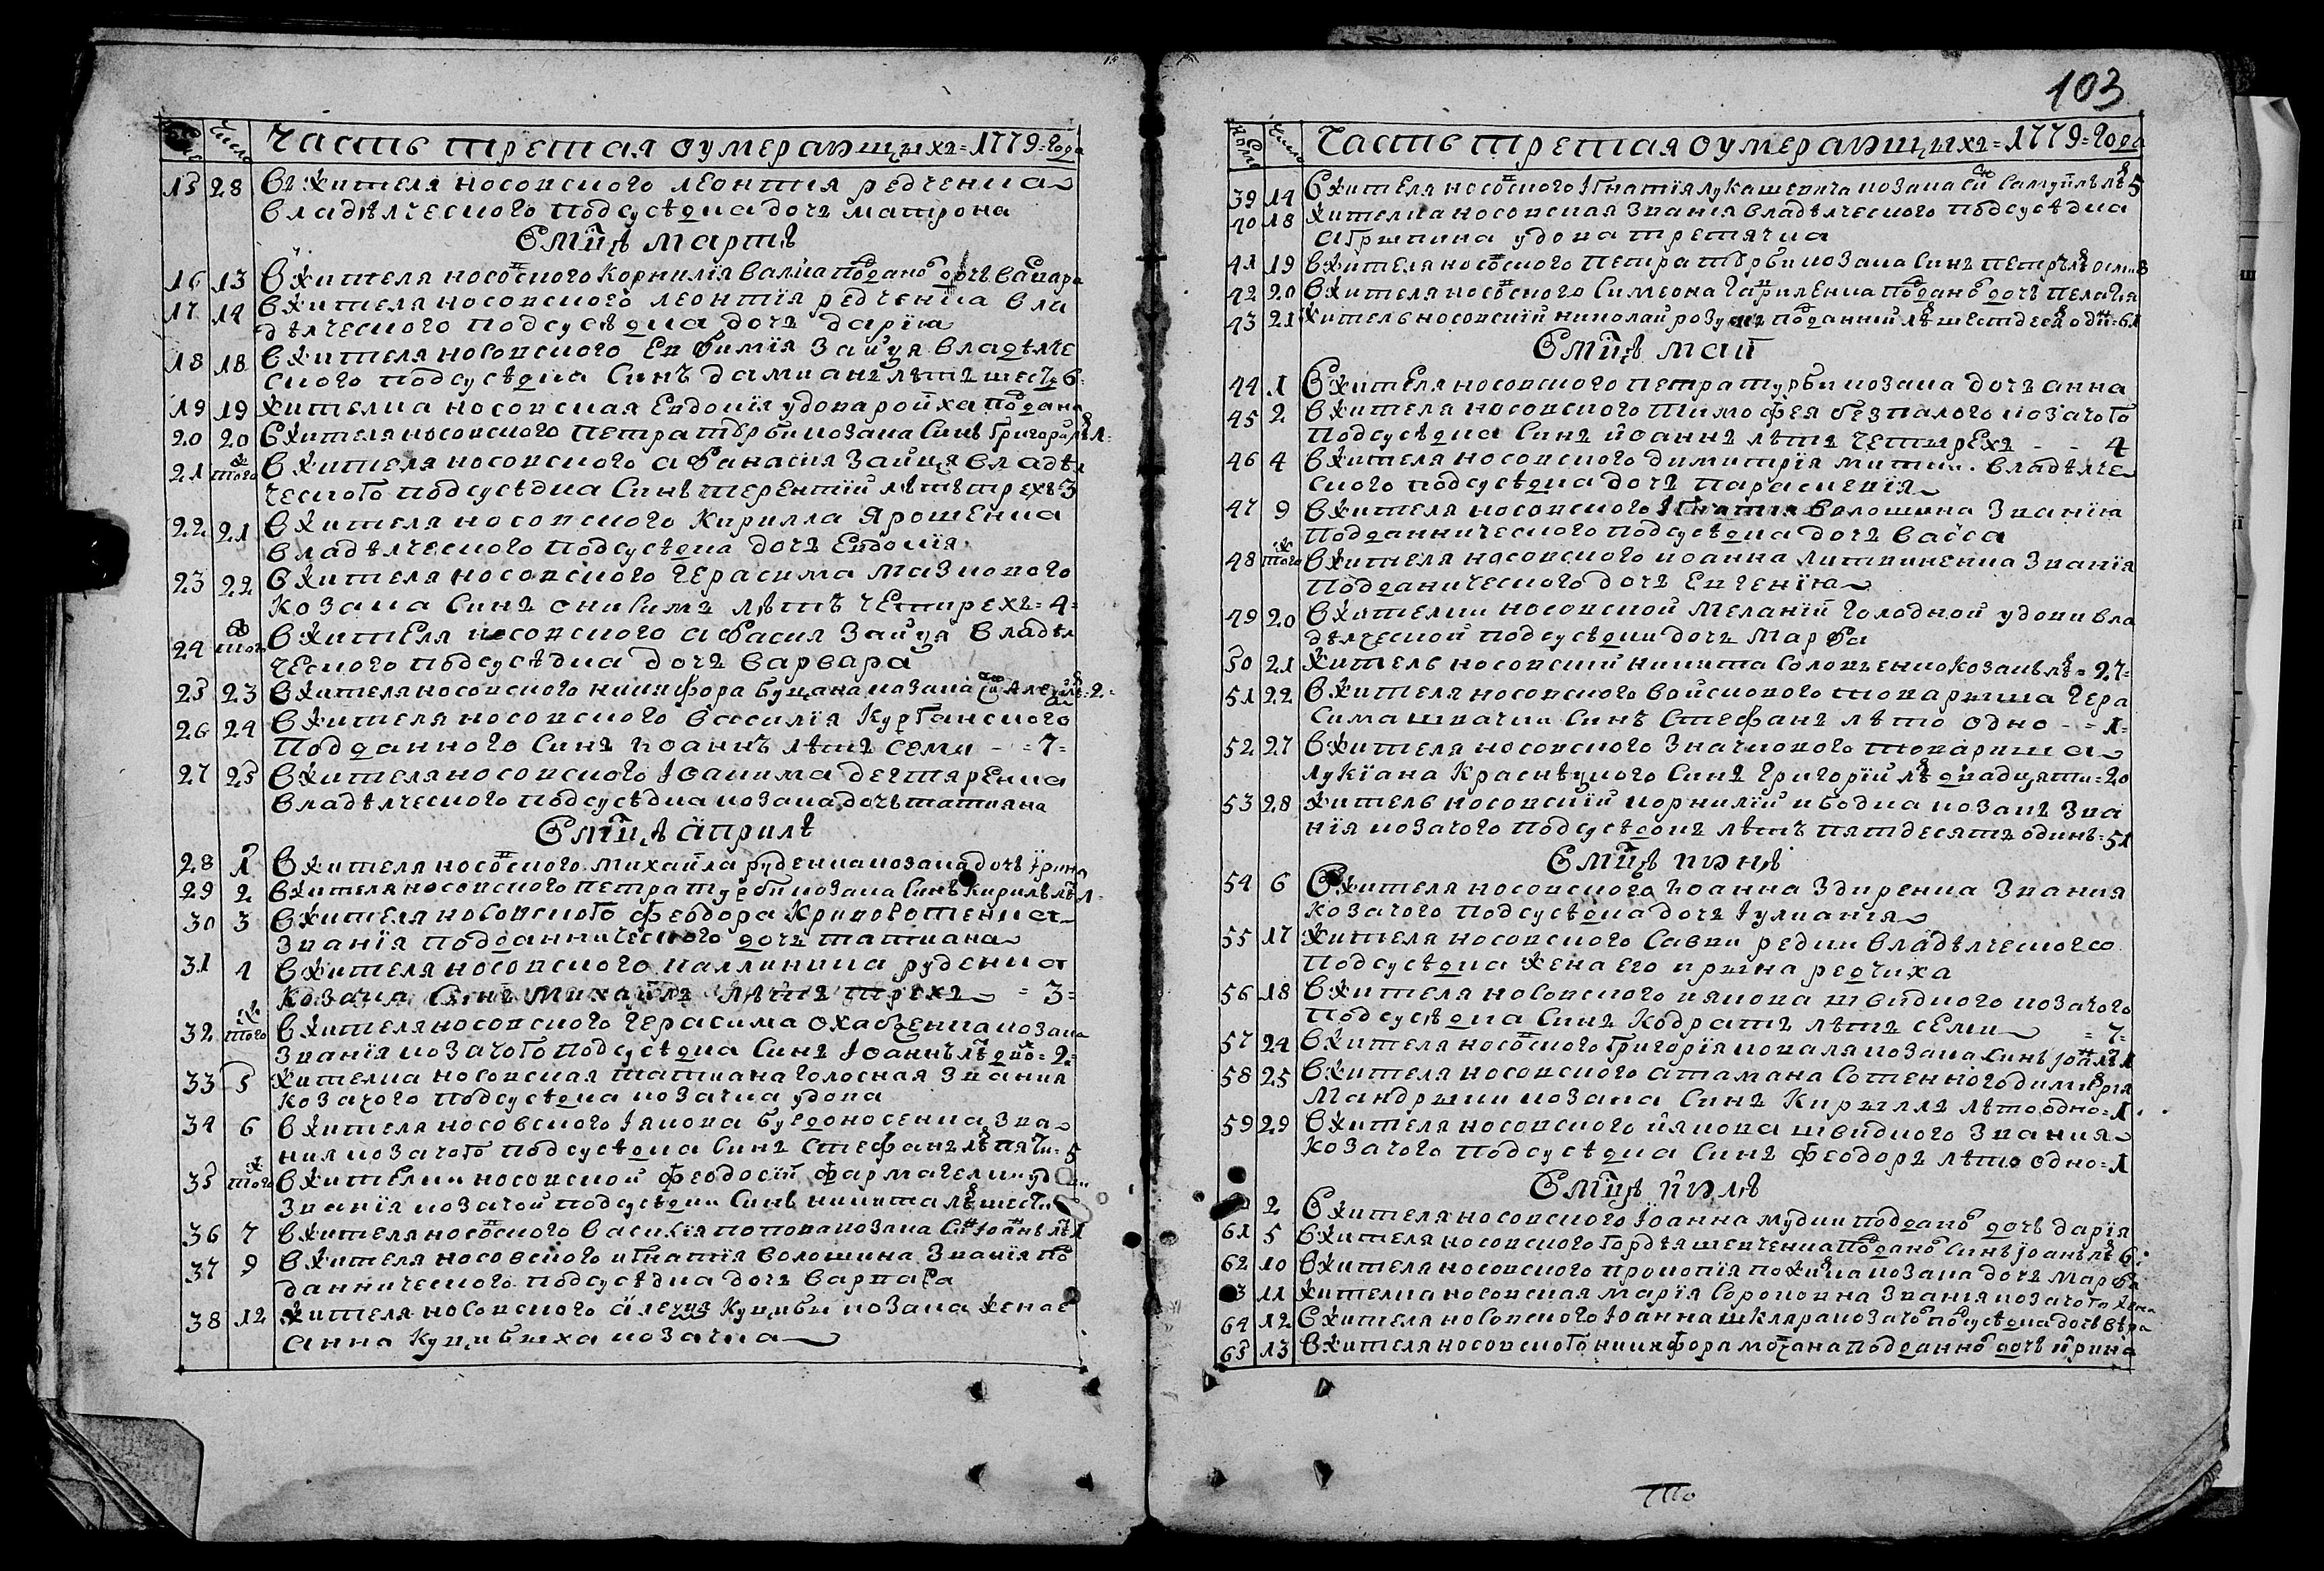 Число
Часть третая оумераюшихъ = 1779 = года
15 28 въ жителя носовского леонтия редченка
владѣлческого подсусѣдка дочъ матрона
Вмцѣ мартѣ
16 13 в жителя носовского Корнилїя валка подано дочъ варвара
17 14 в жителя носовского леонтїя редченка вла
дѣлческого подсусѣдка дочъ дарїя
18 18 в жителя носовского Евфимїя Зайця владѣлче
ского подсусѣдка синъ дамианъ лѣтъ шесть 6
19 19 жителка носовская Евдокїя удова ройха подана
20 20 в жителя носовского петра турби козака синъ григорий лѣ 1
21 того ж в жителя носовского афанасия Зайця владѣл
ческого подсусѣдка синъ терентїй лѣтъ трехъ 3
22 21 в жителя носовского Кирилла Ярошенка
владѣлческого подсусѣдка дочъ Евдокїя
23 22 в жителя носовского герасима мазкового
козака синъ онисимъ лѣтъ четирехъ = 4 =
24 того ж в жителя носовского афасия Зайця владѣл
ческого подсусѣдка дочъ варвара
25 23 в жителя носовского никифора буцана козака синъ лѣ = 2 =
26 24 в жителя носовского василїя Курганского
подданного синъ иоаннъ лѣтъ семи - = 7 =
27 25 в жителя носовского Iоакима дегтяренка
владѣлческого подсусѣдка козака дочъ татияна
Вмцѣ априлѣ
28 1 в жителя носовского михайла руденка козака дочъ їрина
29 2 в жителя носовского петра турби козака синъ кирилъ лѣ 1
30 3 в жителя носовского феодора Кривовотенка
званїя подданнического дочъ татиана
31 4 в жителя носовского каллиника руденка
козака синъ михайлъ лѣтъ трехъ = 3 =
32 того ж в жителя носовского герасима охабенка козака
званїя козачого подсусѣдка синъ Iоаннъ лѣ дво = 2 =
33 5 жителка носовская татиана голосная звания
козачого подсусѣдка козачка удова
34 6 в жителя носовского Iакова будоносенка зва
ния козачого подсусѣдка синъ стефанъ лѣ пяти = 5
35 того ж в жителки носовской феодосїй фармагейки
званїя козачой подсусѣдки синъ никита лѣ шести
36 7 в жителя носовского василїя попова козака синъ Iоанъ лѣ 1
37 9 в жителя носовского игнатїя волошина званїя по
даннического подсусѣдка дочъ варвара
38 12 жителя носовского алеция Куцибы козака жена е
анна Куцибиха козачка
103
Номер Число
Часть третая оумераюшихъ = 1779 = года
39 14 в жителя носовского Iгнатїя лукашевича козака синъ самуйлъ лѣ 5
40 18 жителка носовская звания владѣлческого подсусѣдка
агрипина удова третячка
41 19 в жителя носовского петра турби козака синъ петръ лѣ осми 8
42 20 в жителя носовского симеона гавриленка подано дочъ пелагия
43 21 житель носовский николай розу подданний лѣ шестдеся один = 61
Вмцѣ маи
44 1 в жителя носовского петра турби козака дочъ анна
45 2 в жителя носовского тимофея безпалого козачого
подсусѣдка синъ иоаннъ лѣтъ четирехъ - - 4
46 4 в жителя носовского димитрїя владѣлче
ского подсусѣдка дочъ параскевїя
47 9 в жителя носовского Iгнатия волошина званїя
подданнического подсусѣдка дочъ васса
48 того ж в жителя носовского иоанна литвиненка званїя
подданического дочъ Евгенїя
49 20 в жителки носовской меланїй голодной удови вла
дѣлческой подсусѣдки дочъ марфа
50 21 житель носовский никита соловненко козакъ лѣ = 27 =
51 22 в жителя носовского войскового товариша гера
сима шпачки синъ стефанъ лѣто одно - = 1 =
52 27 в жителя носовского значкового товариша
лукїана красиѣцкого синъ григорїй лѣ двадцати = 20
53 28 житель носовский корнилїй ибодка козакъ зва
нїя козачого подсусѣдокъ лѣтъ пятдесятъ одинъ = 51
Вмцѣ июнѣ
54 6 в жителя носовского иоанна здиренка звания
козачого подсусѣдка дочъ Iулиания
55 17 жителя носовского савки редки владѣлческого
подсусѣдка жена его ирина редчиха
56 18 в жителя носовского иякова швидкого козачого
подсусѣдка синъ кодратъ лѣтъ семи = 7 =
57 24 в жителя носовского григорїя коваля козака синъ Iоан лѣ 1
58 25 в жителя носовского атамана сотенного димитрїя
мандрики козака синъ Кириллъ лѣто одно = 1
59 29 в жителя носовского иякова швидкого звания
козачого подсусѣдка синъ феодоръ лѣто одно = 1
Вмцѣ июлѣ
2 в жителя носовского Iоанна мудки подано дочъ дарїя
61 5 в жителя носовского гордѣя шевченка подано синъ Iоанъ лѣ 6
62 10 в жителя носовского прокопїя козака дочъ марфа
63 11 жителка носовская марїя сорокопна звания козачого жена
64 12 в жителя носовского Iоанна шкляра козачо подсусѣдка дочъ вѣра
65 13 в жителя носовского никифора моцана подданно дочъ ирина